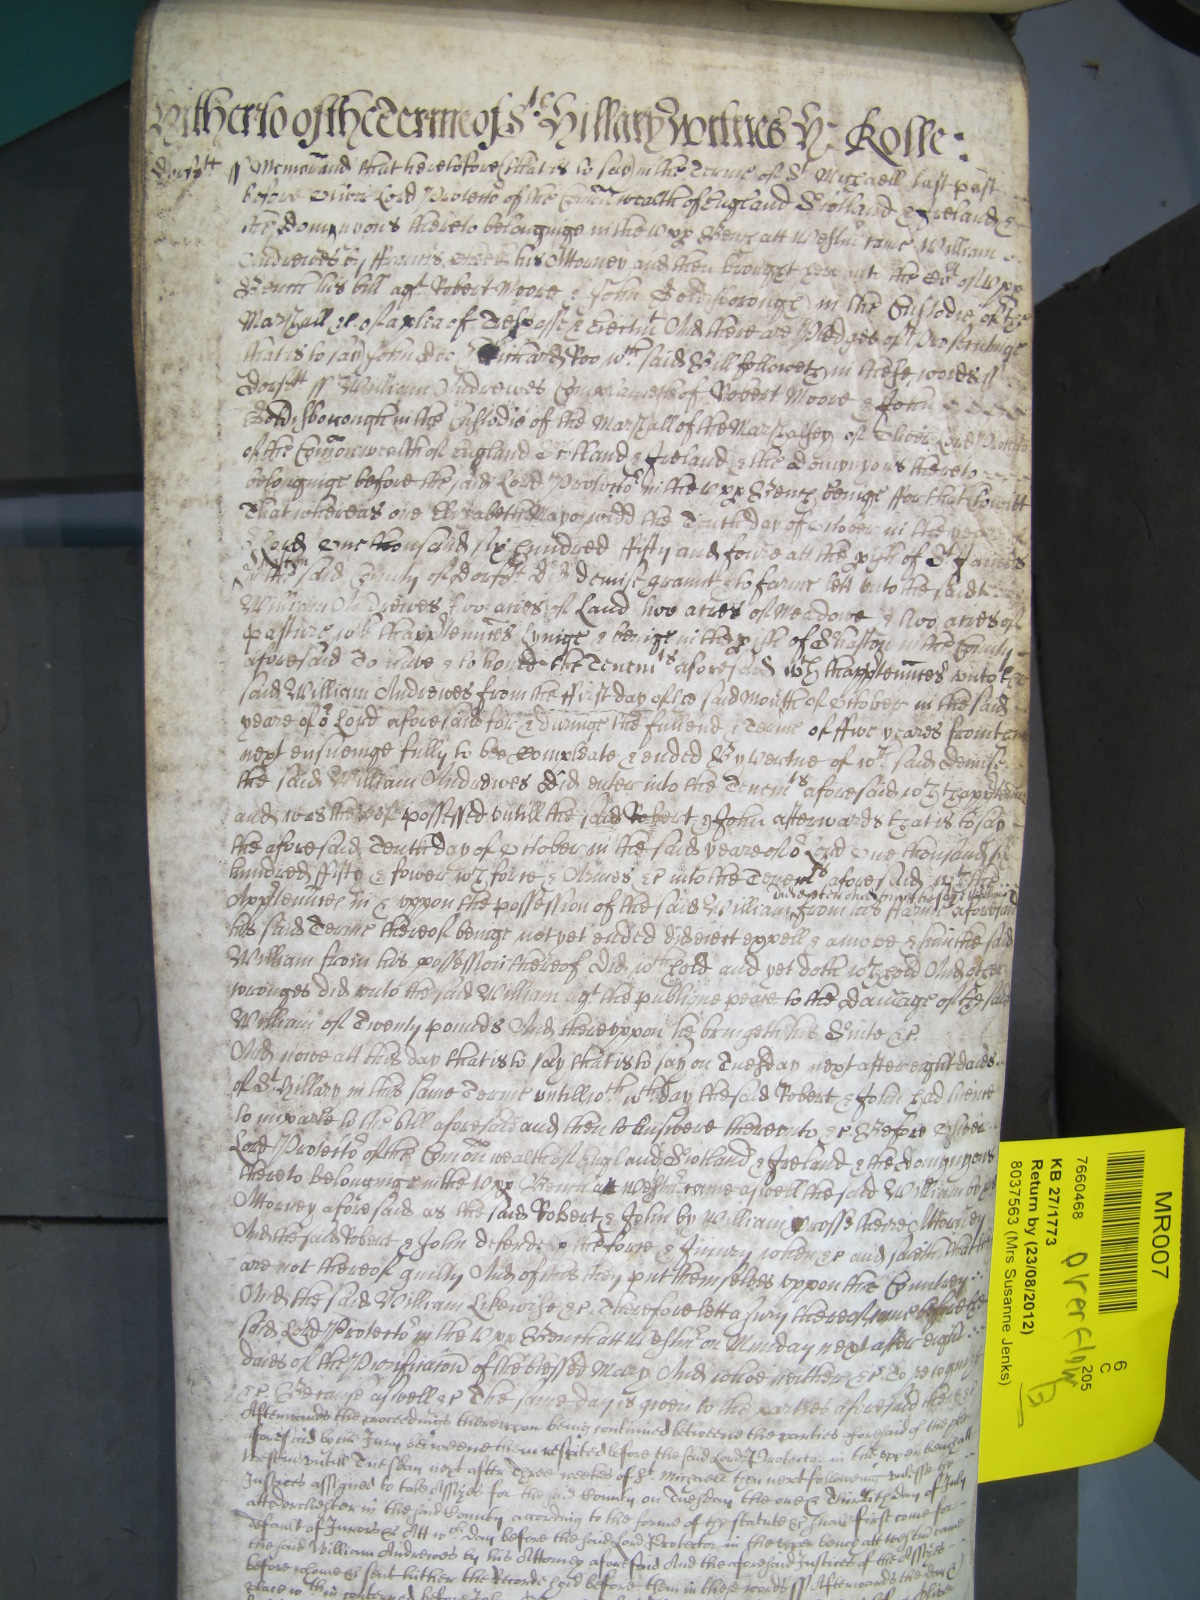 hitherto of the Terme of St. Hillary witnes H: Rolle:
Dorsett ss Memorand that heretofore (that is to say) in the Terme of St. Michaell last past
before Oliver Lord Protector of the Comon wealth of England Scotland & Ireland &
the Dominyons thereto belonginge in the Upp Bench att Westmr came William
Andrewes by Francis his Attorney and then brought here into the Court of Upp
Bench his bill agt Robert Moore & John Goldisborough in the Custodie of the
Marshall &c of a plea of Trespasse & Eiectmt And there are Pledges of Prosecutinge
that is to say John Doe & Richard Roo wch said Bill followeth in these words ss
Dorsett ss William Andrewes Complaineth of Robert Moore & John
Goldisborough in the Custodie of the Marshall of the Marshalsey of Oliver Lord Protector
of the Comonwealth of England Scotland & Ireland & the Dominyons thereto
belonginge before the said Lord Protector in the Upp Bench beinge ffor that to witt
That whereas one Elizabeth Mayo widd the Tenth day of October in the yeare
Lord One thousand six hundred ffifty and foure att the pish of St James
in the said County of Dorsett Did demise graunt & to farme lett unto the said
William Andrewes Two acres of Land two acres of Meadowe & two acres of
pasture wth thapptennces lyinge & beinge in the pish of Shaston in the County
aforesaid To have & to hould the Tenemts aforesaid wth thapptennces unto the
said William Andrewes from the ffirst day of the said Month of October in the said
yeare of or Lord aforesaid for & duringe the full end & Terme of ffive yeares from thence
next ensueinge fully to bee compleate & ended By vertue of wch said Demise
the said William Andrewes did enter into the Tenemts aforesaid wth thapptennces
and was thereof possessed untill the said Robert & John afterwards that is to say
the aforesaid Tenth day of October in the said yeare of or Lord One thousand six
hundred ffifty & fower wth force & Armes &c into the Tenemts aforesaid wth the
Apptennces in & uppon the possession of the said William from his Farme aforesaid
his said Terme thereof beinge not yet ended did eiect expell & amove & him the said
William from his possession thereof did wthhold and yet doth wthhold And other
wronges did unto the said William agt the publique peace to the Damage of the said
William of Twenty pounds And thereuppon he bringeth his Suite &c
And nowe att this day that is to say that is to say on Tuesday next after eight daies
of St Hillary in this same Terme untill wch wch day the said Robert & John had licence
to imparle to the bill aforesaid and then to Answere thereunto &c Before Oliver
Lord Protector of the Comon wealth of England Scotland & Ireland & the Dominyons
thereto belonginge in the Upp Bench att Westmr came aswell the said William by his
Attorney aforesaid as the said Robert & John by William Crosse there Attorney
And the said Robert & John defende the force & Iniury when &c and saieth that they
are not thereof guilty And of this they put themselves uppon the Countrey
And the said William Likewise &c Therefore lett a Jury thereof come before the
said Lord Protector in the Upp Bench att Westmr on Munday next after eight
daies of the Purificacion of the blessed Mary And whoe neither &c To recognize
&c Because aswell &c The same day is given to the parties aforesaid there &c
Afterwards the proceedings thereupon being continued betweene the parties aforesaid of the plea
aforesaid by the Jury betweene them respited before the said Lord Protector in the upper bench att
Westmr untill Tuesday next after Three weekes of St. Michaell then next following unlesse the
Justices assigned to take Assizes for the said County on Tuesday the one & Thirtith day of July
att Dorchester in the said County according to the forme of the statute &c shall first come for
default of Jurors &c Att wch day before the said Lord Protector in the upper bench att Westmr came
the said William Andrewes by his Attorney aforesaid And the aforesaid Justices of the Assizes
before whome &c sent hither the Records had before them in these words ss Afterwards the day &
place wthin contained before

MR007
6
C
205
7660468
KB 27/1773
Return by (23/08/2012)
8037563 (Mrs Susanne Jenks)
overflow